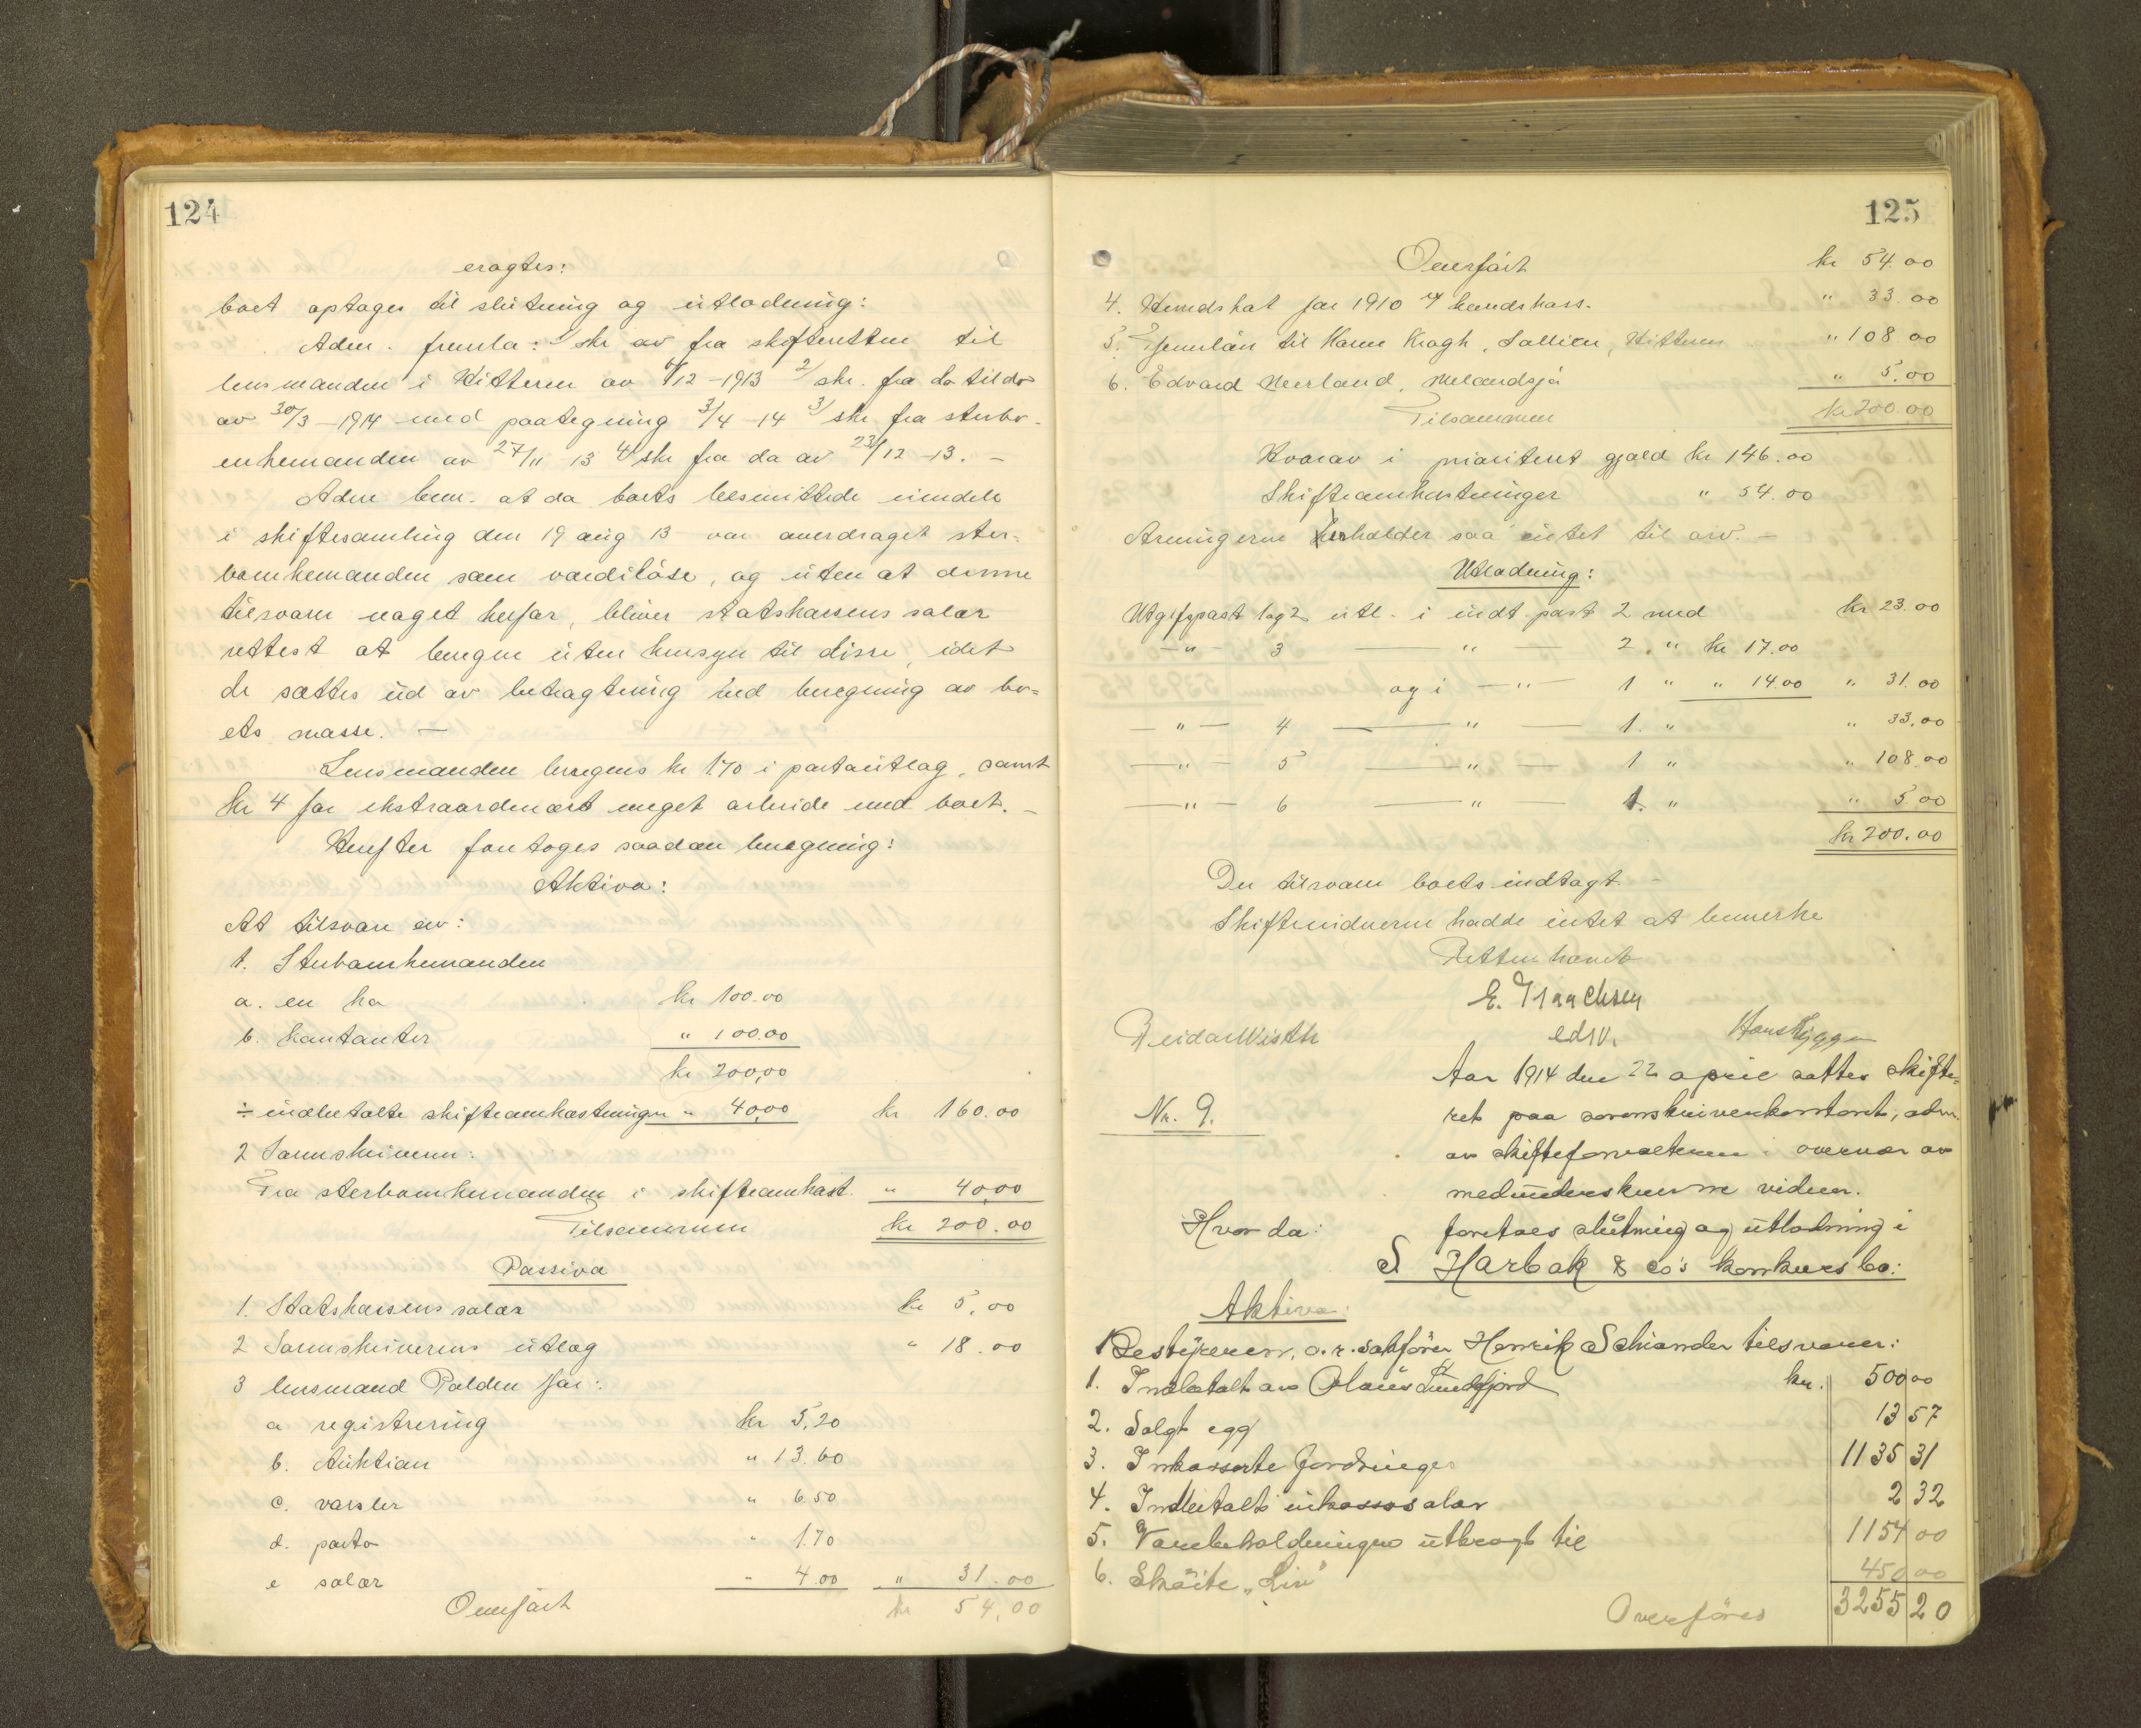 124
eragtes:
boet optages til slutning og utlodning:
Adm. fremla: 1/ skr. av fra skifteretten til
lensmanden i Hitteren av 6/12-1913 2/ skr. fra do til do
av 30/3-1914 med paategning 3/4-14 3/ skr fra sterbo-
enkemanden av 27/11 13 4/ skr fra do av 23/12-13. -
Adm bem. at da boets besmittede eiendele
i skiftesamling den 19 aug 13 var overdraget ster-
boenkemanden som værdiløse, og uten at denne
tilsvarer noget herfor, bliver statskassens salær
rettest at beregne uten hensyn til disse, idet
de sættes ud av betragtning ved beregning av bo=
ets masse. -
Lensmanden beregnes kr 1.70 i portoutlæg, samt
kr 4 for ekstraordinært meget arbeide med boet. -
Herefter foretoges saadan beregning:
Aktiva:
At tilsvare av:
1. Sterboenkemanden
a. en ko kr 100.00
b. kontanter " 100.00
kr 200,00
÷ indbetalte skifteomkostninger " 40,00 kr 160.00
2 Sorenskriveren:
Fra sterboenkemanden i skifteomkost. " 40,00
Tilsammen kr 200.00
Passiva
1. Statskassens salær kr 5,00
2 Sorenskriverens utlæg " 18.00
3 lensmand Palden for:
a registrering kr 5.20
b. Auktion " 13.60
c. varsler " 6.50
d. porto " 1.70
e salær " 4.00 " 31.00
Overført kr 54,00
125
Overført kr 54.00
4. Hundskat for 1910 kr " 33.00
5. Hjemlån til Karen Kragh, Hitteren " 108.00
6. Edvard Meland, Melandsjø " 5.00
Tilsammen kr 200.00
Hvorav i prioritert gjæld kr 146.00
Skifteomkostninger " 54.00
Arvingerne erholder saa intet til arv. -
Utlodning:
Utgiftspost 1 og 2 utl. i indt. post 2 med kr 23.00
-"- 3 -"- 2 " kr 17.00
og i -"- 1 " " 14.00 " 31.00
-"- 4 -"- 1. " " 33.00
-"- 5 -"- 1 " " 108.00
-"- 6 -"- 1. " " 5.00
kr 200.00
Der tilsvarer boets indtægt -
Skiftevidnerne hadde intet at bemerke
Retten hævet
E. Isachsen
edsv.
Reidar Wisth Hans Kjgge
Nr. 9.
Aar 1914 den 22 april sattes skifte=
ret paa sorenskriverkontoret, adm.
av skifteforvalteren i overvær av
medunderskrevne vidner.
Hvor da: foretoes slutning og utlodning i
S. Harbak & Co's konkursbo:
Aktiva:
Bestyreren, o.r. sakfører Henrik Schiander tilsvarer:
1. Indbetalt av Olaus Sundfjord kr. 500 00
2. Solgt egg 13 57
3. Inkasserte fordringer 1135 31
4. Indbetalt inkassosalær 2 32
5. Varebeholdningen utbragt til 1154 00
6. Skøite "Liv" 450 00
Overføres 3255 20